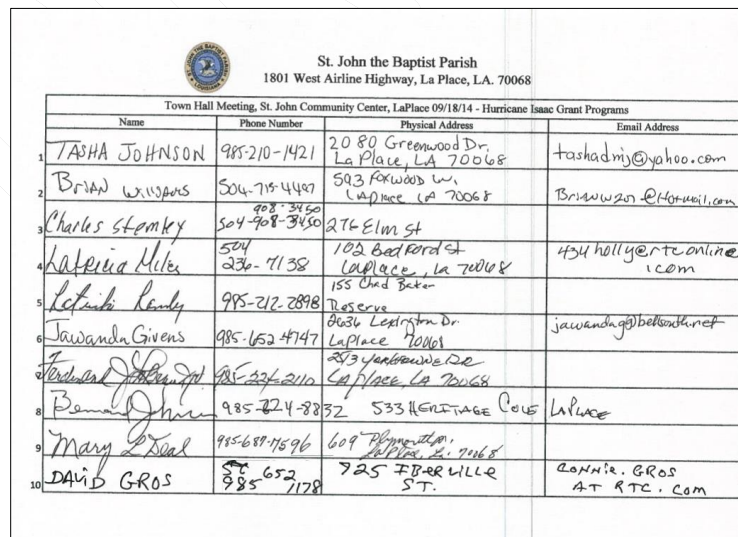 St. John the Baptist Parish
1801 West Airline Highway, La Place, LA. 70068
Town Hall Meeting, St. John Community Center, LaPlace 09/18/14 - Hurricane Isaac Grant Programs
Name Phone Number Physical Address Email Address
1 TASHA JOHNSON 985-210-1421 2080 Greenwood Dr. La Place, LA 70068 tashadmj@yahoo.com
2 BRIAN 504-715-4497 593 FOXWOOD LN. LAPlace LA 70068
908-3450
3 Charles Stemley 504-908-3450 276 Elm St
4 Latricia Miles 504 236-7138 102 Bedford St Laplace, La 70068 434holly@rtconline.com
5 985-212-2898 155 Chad Baker Reserve
6 Jawanda Givens 985-652-4747 2636 Lexington Dr. LaPlace 70068 jawandag@bellsouth.net
7 Ferdinand 985-224-2110 LAPLACE, LA 70068
8 985-224-8832 533 HERITAGE LAPLACE
9 Mary L Deal 985-687-7596 609 Plymouth Dr. LaPlace, La. 70068
10 DAVID GROS 985 652 1178 925 IBERVILLE ST. CONNIE.GROS AT RTC.COM